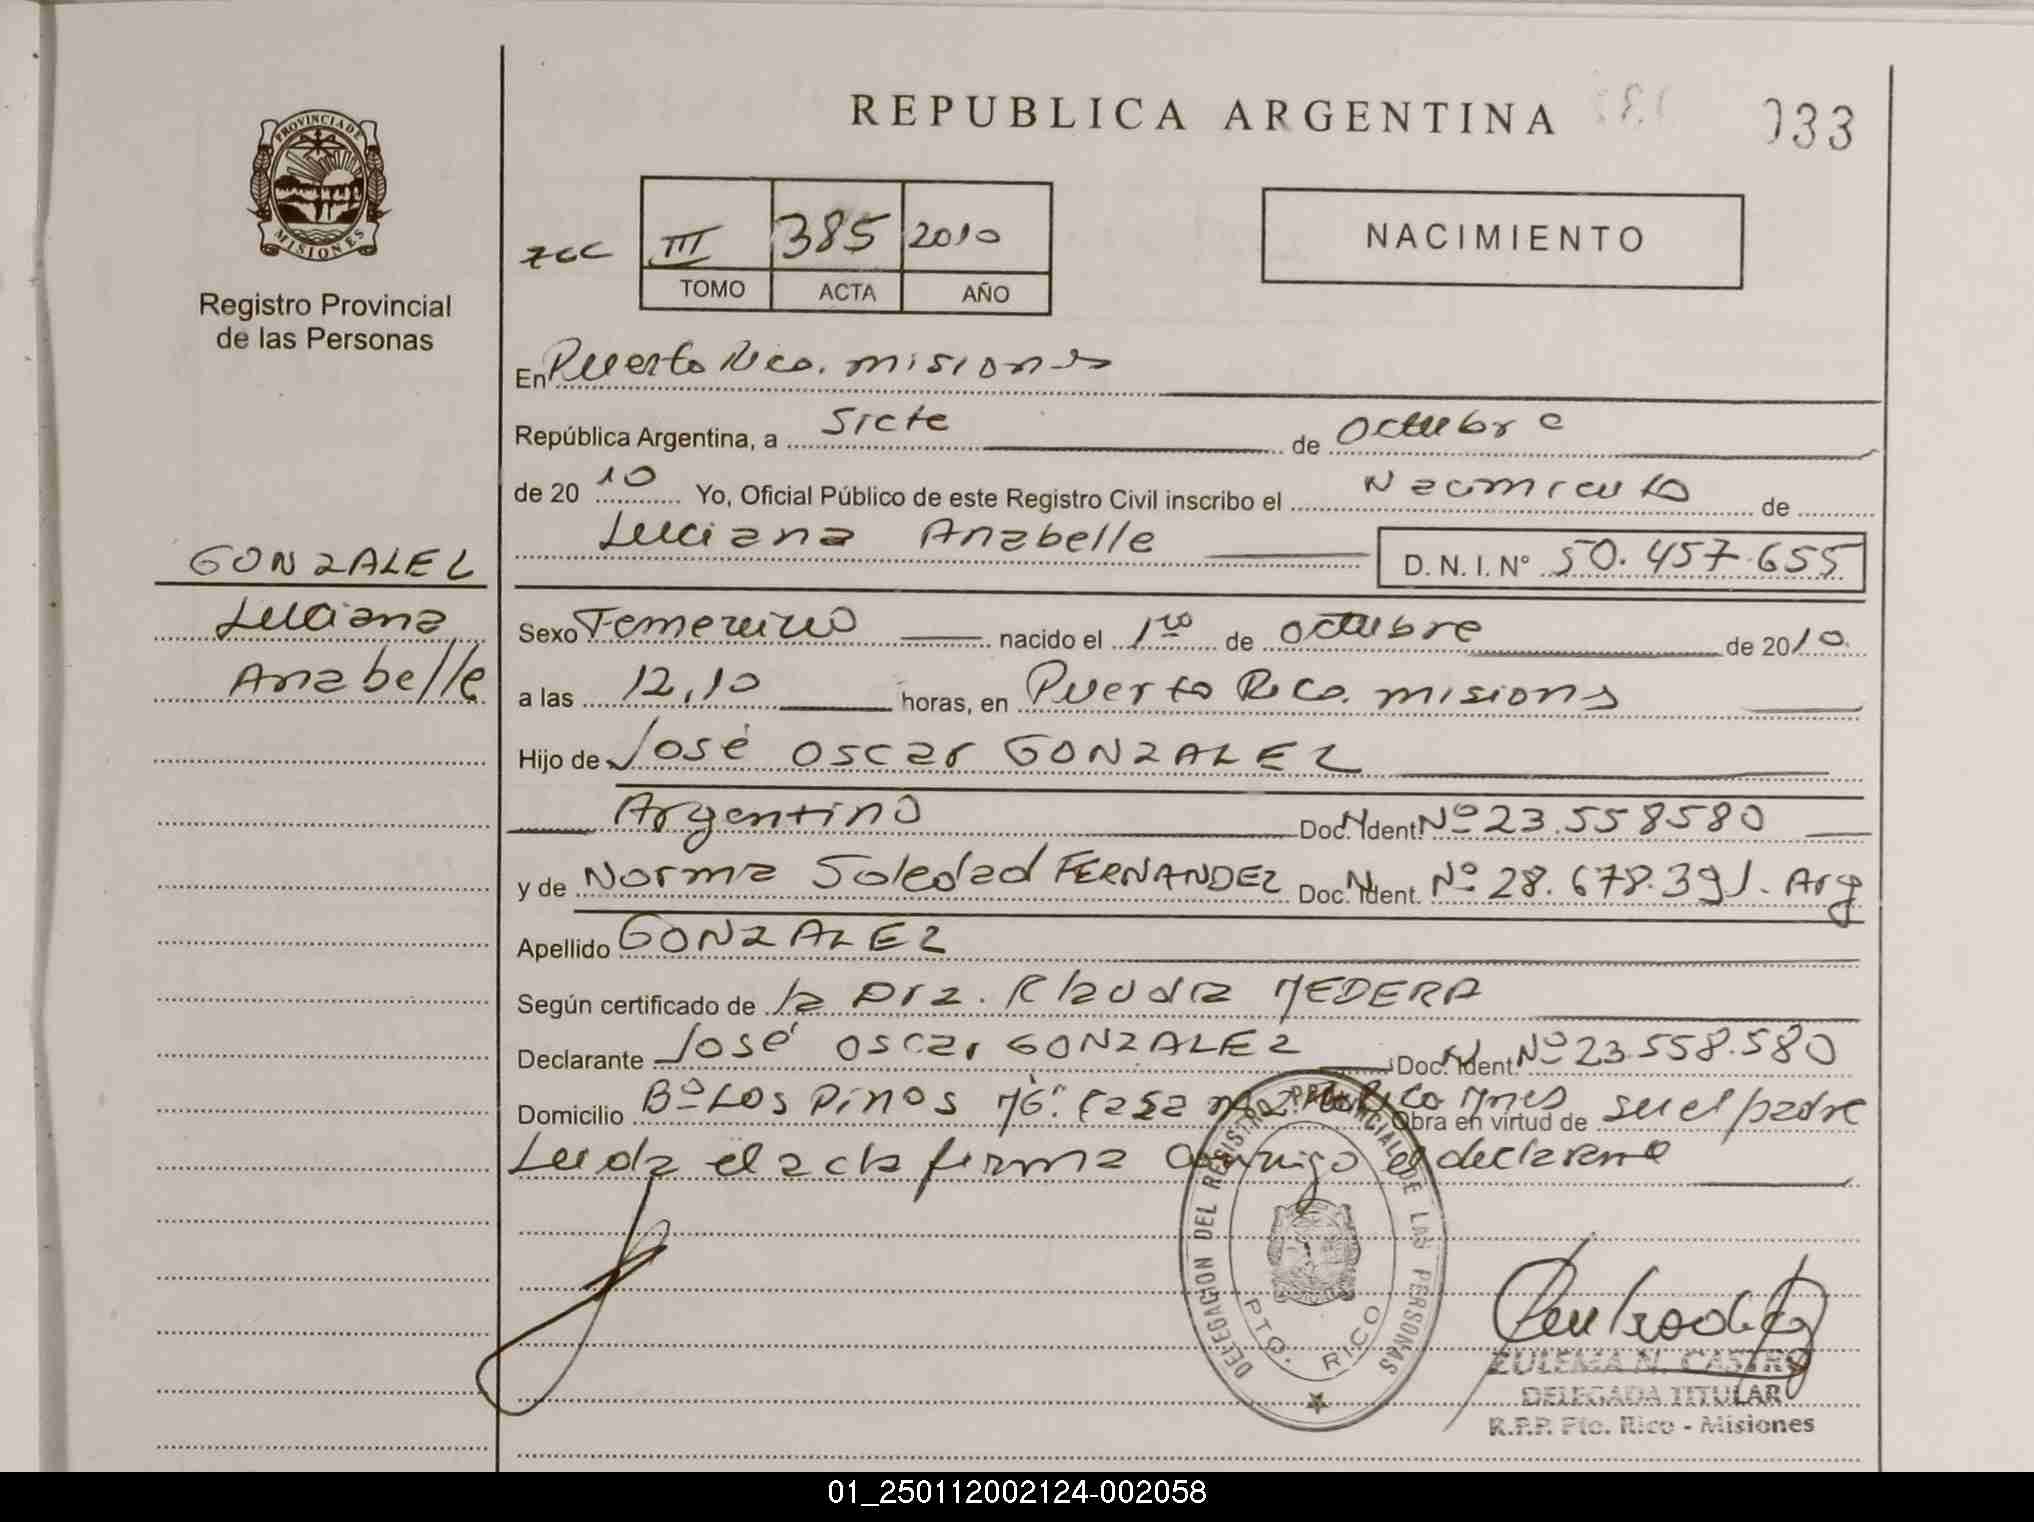 REPUBLICA ARGENTINA
033
PROVINCIA DE MISIONES
Registro Provincial
de las Personas
III 385 2010
TOMO ACTA AÑO
NACIMIENTO
En Puerto Rico. misiones
República Argentina, a Siete de octubre
de 20 10 Yo, Oficial Público de este Registro Civil inscribo el Nacimiento de
Luciana Anabelle D. N. I. N° 50.457.655
GONZALEZ
Luciana
Anabelle
Sexo Femenino nacido el 1ro de octubre de 2010
a las 12,10 horas, en Puerto Rico. misiones
Hijo de José Oscar GONZALEZ
Argentino Doc. Ident. Nº 23.558580
y de Norma Soledad FERNANDEZ Doc. Ident. Nº 28.678.391. Arg
Apellido GONZALEZ
Según certificado de la Dra. Klaudia MEDERA
Declarante José Oscar GONZALEZ Doc. Ident. Nº 23.558.580
Domicilio Bº Los Pinos Casa Rico Mnes Obra en virtud de ser el padre
Leida el acta firma conmigo el declarante
DELEGACION DEL REGISTRO PROVINCIAL DE LAS PERSONAS
PTO. RICO
ZULEMA N. CASTRO
DELEGADA TITULAR
R.P.P. Pto. Rico - Misiones
01_250112002124-002058